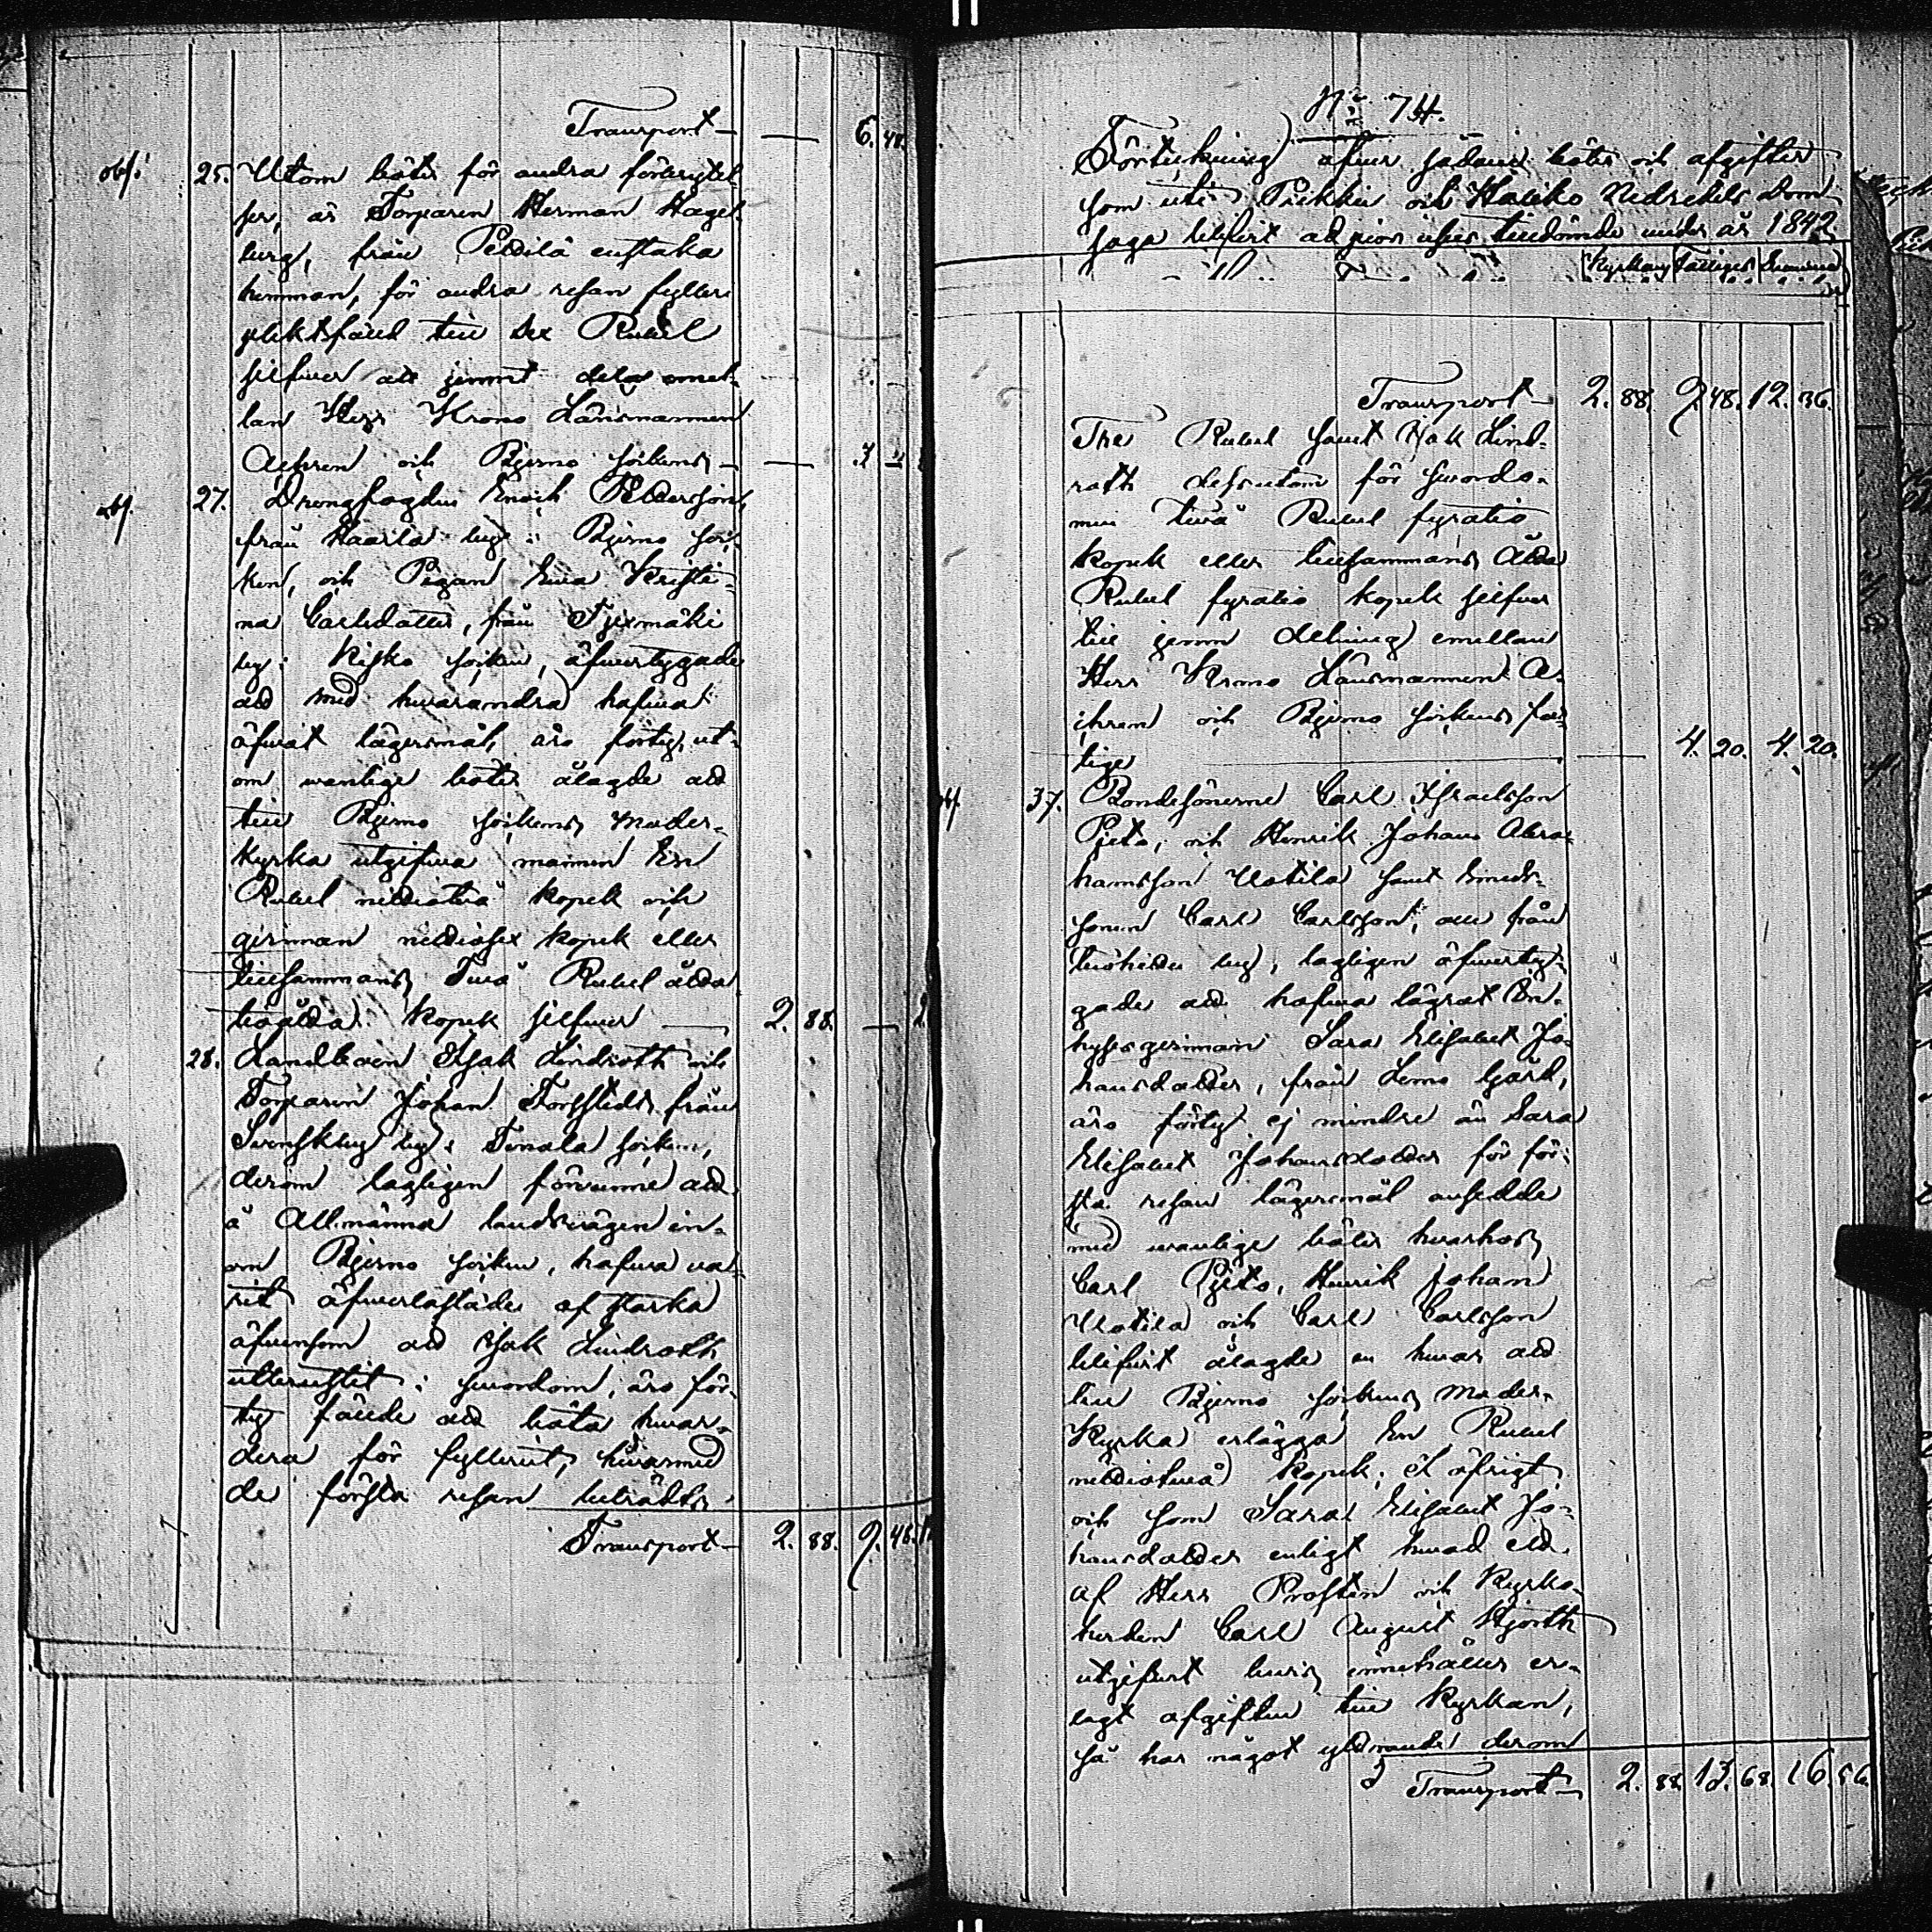 Transport — — 6. 48.
obs: 25. Utom böter för andra förbrytel-
ser, är Torparen Herman Hagel-
berg, från Peldilä enstaka
hemman, för andra resan fylleri
pliktfäld till Sex Rubel
silfver att jemnt dela emel-
lan Herr Krono Länsmannen
Achren och Bjerno sockens — — 3 —
obs. 27. Drengfogden Enoch Pettersson,
från Haarla by i Bjerno soc-
ken, och Pigan Eva Kristi-
na Carlsdotter, från
by i Kisko socken, öfvertygade
att med hvarandra hafva
öfvat lägersmål, äro förty, ut-
om vanlige böter ålagde att
till Bjerno sockens moder-
kyrka utgifva mannen En
Rubel nittiotvå kopek och
qvinnan nittiosex kopek eller
tillsammans Två Rubel åtta-
tioåtta kopek silfver — 2. 88. —
28. Landboen Isak Lindroth och
Torparen Johan Forsstedt från
Svenskby by i Tenala socken,
derom lagligen förvunne att
å Allmänna landsvägen in-
om Bjerno socken, hafva va-
rit öfverlastade af starka
äfvensom att Isak Lindroth
utbrustit i svordom, äro för-
ty fälde att böta hvar-
dera för fylleriet, hvarmed
de första resan beträdts,
Transport — 2. 88. 9. 48.
No 74.
Förteckning öfver sådane böter och afgifter
som uti Pikkis och Halikko Nedredels Dom-
saga blifvit ad pios usus tilldömde under år 1842.
Kyrkans Fattiges Summa
Transport — 2. 88. 9. 48. 12. 36.
Tre Rubel samt Isak Lind-
roth dessutom för svordo-
men två Rubel fyratio
kopek eller tillsammans Åtta
Rubel fyratio kopek silfver
till jemn delning emellan
Herr Krono Länsmannen A-
chren och Bjerno sockens fat-
tige — 4. 20. 4. 20.
obs. 37. Bondesönerne Carl Israelsson
Pjets, och Henrik Johan Abra-
hamsson Uotila samt Smeds-
sonen Carl Carlsson, alle från
by, lagligen öfverty-
gade att hafva lägrat In-
hyses qvinnan Sara Elisabet Jo-
hansdotter, från Lemo Gård,
äro förty ej mindre än Sara
Elisabet Johansdotter för för-
sta resan lägersmål ansedde
med vanlige böter hvarhos
Carl Pjets, Henrik Johan
Uotila och Carl Carlsson
blifvit ålagde en hvar att
till Bjerno sockens moder-
kyrka erlägga En Rubel
nittiotvå kopek; i öfrigt
och som Sara Elisabet Jo-
hansdotter enligt hvad ett
af Herr Prosten och Kyrko-
herden Carl August Hjorth
utgifvet bevis innehåller er-
lagt afgiften till Kyrkan,
så har något yttrande derom
Transport — 2. 88. 13. 68. 16. 56.